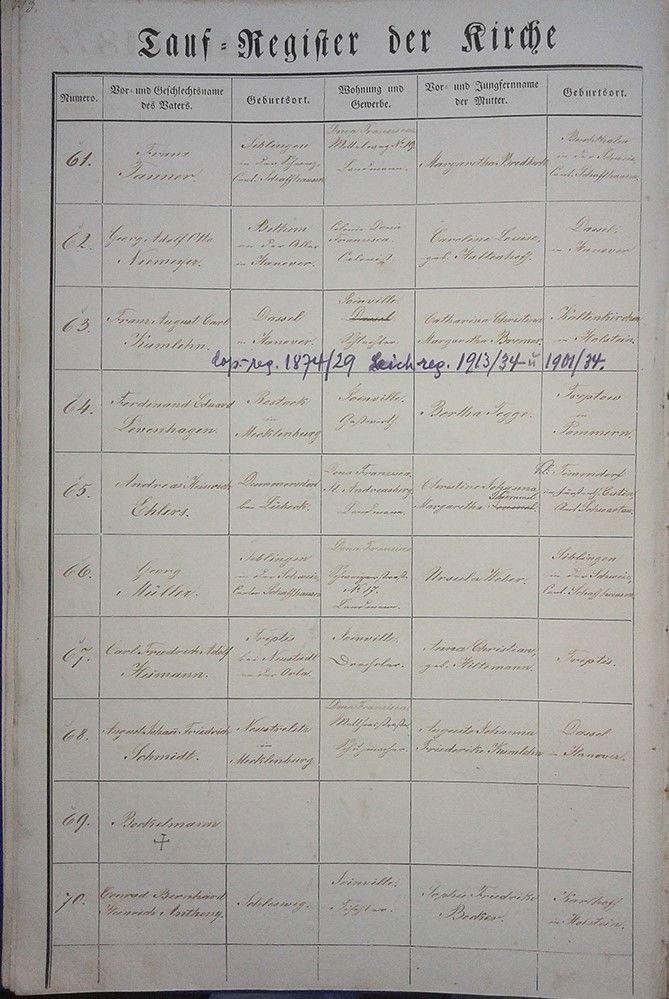 Tauf-Register der Kirche
Numero.
Vor- und Geschlechtsname
des Vaters.
Geburtsort.
Wohnung und
Gewerbe.
Vor- und Jungfernname
der Mutter.
Geburtsort.
61.
Franz
Tanner.
Siblingen
in der Schweiz,
Cant. Schaffhausen
Dona Francisca
Landmann.
Margaretha
in der Schweiz,
Cant. Schaffhausen.
62.
Georg Adolf Otto
Niemeyer.
Bothem
an der Aller
in Hanover.
Colonie Dona
Francisca.
Colonist.
Caroline Louise,
geb. Kaltenhoff.
Dassel
in Hanover
63.
Franz August Carl
Kumlehn.
Dassel
in Hanover.
Joinville.
Dassel
Catharina Christian
Margaretha Bremer.
Kaltenkirchen
in Holstein.
Cop.-reg. 1874/29 Leichreg. 1913/34 u 1901/34.
64.
Ferdinand Eduard
Levenhagen.
Rostock
in
Mecklenburg
Joinville.
Gastwirth.
Bertha Tegge.
Treptow
in
Pommern.
65.
Andreas Heinrich
Ehlers.
Dummersdorf
bei Lübeck.
Dona Francisca
St. Andreasberg.
Landmann.
Christine Johanna
Margaretha
Kl. Timmendorf
im Fürst. Eutin
Amt Schwartau.
66.
Georg
Müller.
Siblingen
in der Schweiz,
Canton Schaffhausen
Dona Francisca
N. 17.
Landmann.
Ursula Weber.
Siblingen
in der Schweiz,
Cant. Schaffhausen
67.
Carl Friedrich Adolf
Heimann.
Triptis
bei Neustadt
an der Orla.
Joinville.
Drechsler.
Anna Christian,
Triptis.
68.
August Johann Friedrich
Schmidt.
Neustrelitz
in
Mecklenburg
Dona Francisca
Schuhmacher.
Auguste Johanna
Friederike Kumlehn
Dassel
in Hanover.
69.
Bockelmann
70.
Conrad Bernhard
Heinrich Anthony.
Schleswig.
Joinville.
Tischler.
Sophie Friedrike
Becker.
in Holstein.